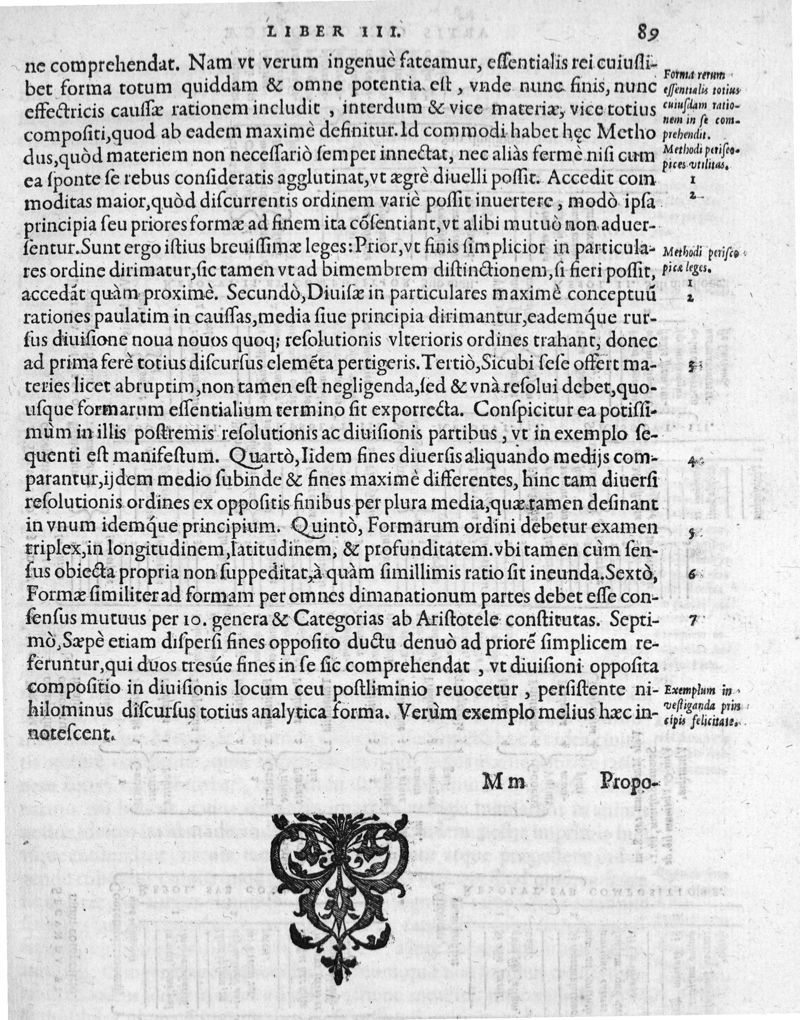 LIBER III. 89
ne comprehendat. Nam vt verum ingenuè fateamur, essentialis rei cuiusli-
bet forma totum quiddam & omne potentia est, vnde nunc finis, nunc
effectricis caussæ rationem includit, interdum & vice materiæ, vice totius
compositi, quod ab eadem maximè definitur. Id commodi habet hęc Metho
dus, quòd materiem non necessariò semper innectat, nec aliàs fermè nisi cum
ea sponte se rebus consideratis agglutinat, vt ægrè diuelli possit. Accedit com
moditas maior, quòd discurrentis ordinem variè possit inuertere, modò ipsa
principia seu priores formæ ad finem ita cõsentiant, vt alibi mutuò non aduer-
sentur. Sunt ergo istius breuissimæ leges: Prior, vt finis simplicior in particula-
res ordine dirimatur, sic tamen vt ad bimembrem distinctionem, si fieri possit,
accedãt quàm proximè. Secundò, Diuisæ in particulares maximè conceptuũ
rationes paulatim in caussas, media siue principia dirimantur, eademq́ue rur-
sus diuisione noua nouos quoq; resolutionis vlterioris ordines trahant, donec
ad prima ferè totius discursus elemẽta pertigeris. Tertiò, Sicubi sese offert ma-
teries licet abruptim, non tamen est negligenda, sed & vnà resolui debet, quo-
usque formarum essentialium termino sit exporrecta. Conspicitur ea potissi-
mùm in illis postremis resolutionis ac diuisionis partibus, vt in exemplo se-
quenti est manifestum. Quartò, Iidem fines diuersis aliquando medijs com-
parantur, ijdem medio subinde & fines maximè differentes, hinc tam diuersi
resolutionis ordines ex oppositis finibus per plura media, quæ tamen desinant
in vnum idemq́ue principium. Quintò, Formarum ordini debetur examen
triplex, in longitudinem, latitudinem, & profunditatem. vbi tamen cùm sen-
sus obiecta propria non suppeditat, à quàm simillimis ratio sit ineunda. Sextò,
Formæ similiter ad formam per omnes dimanationum partes debet esse con-
sensus mutuus per 10. genera & Categorias ab Aristotele constitutas. Septi-
mò, Sæpè etiam dispersi fines opposito ductu denuò ad priorẽ simplicem re-
feruntur, qui duos tresúe fines in se sic comprehendat, vt diuisioni opposita
compositio in diuisionis locum ceu postliminio reuocetur, persistente ni-
hilominus discursus totius analytica forma. Verùm exemplo melius hæc in-
notescent.
Forma rerum
essentialis totius
cuiusdam ratio-
nem in se com-
prehendit.
Methodi perisco-
pices vtilitas.
1
2
Methodi perisco-
picæ leges.
1
2
3
4
5
6
7
Exemplum in
vestiganda prin
cipis felicitate.
Mm Propo-